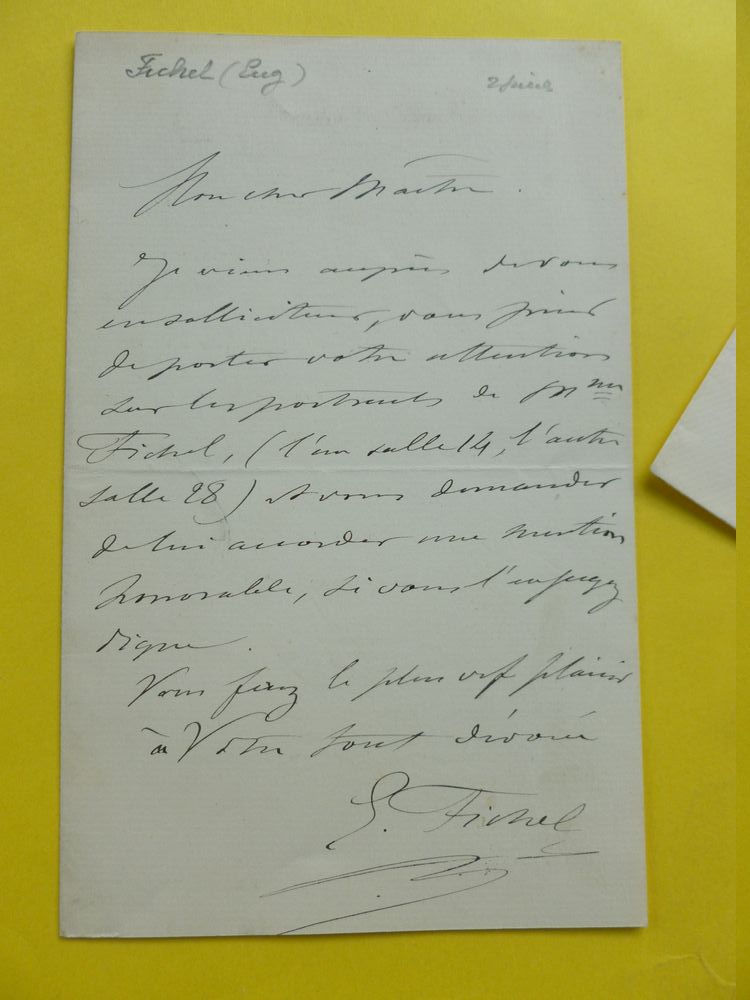 Fichel (Eug) 2 pièces
Mon cher Maître.
Je viens auprès de vous
en solliciteur, vous prier
de porter votre attention
sur les portraits de Mme
Fichel, (l'un salle 14, l'autre
salle 28) et vous demander
de lui accorder une mention
honorable, si vous l'en jugez
digne.
Vous ferez le plus vif plaisir
à Votre tout dévoué
E. Fichel